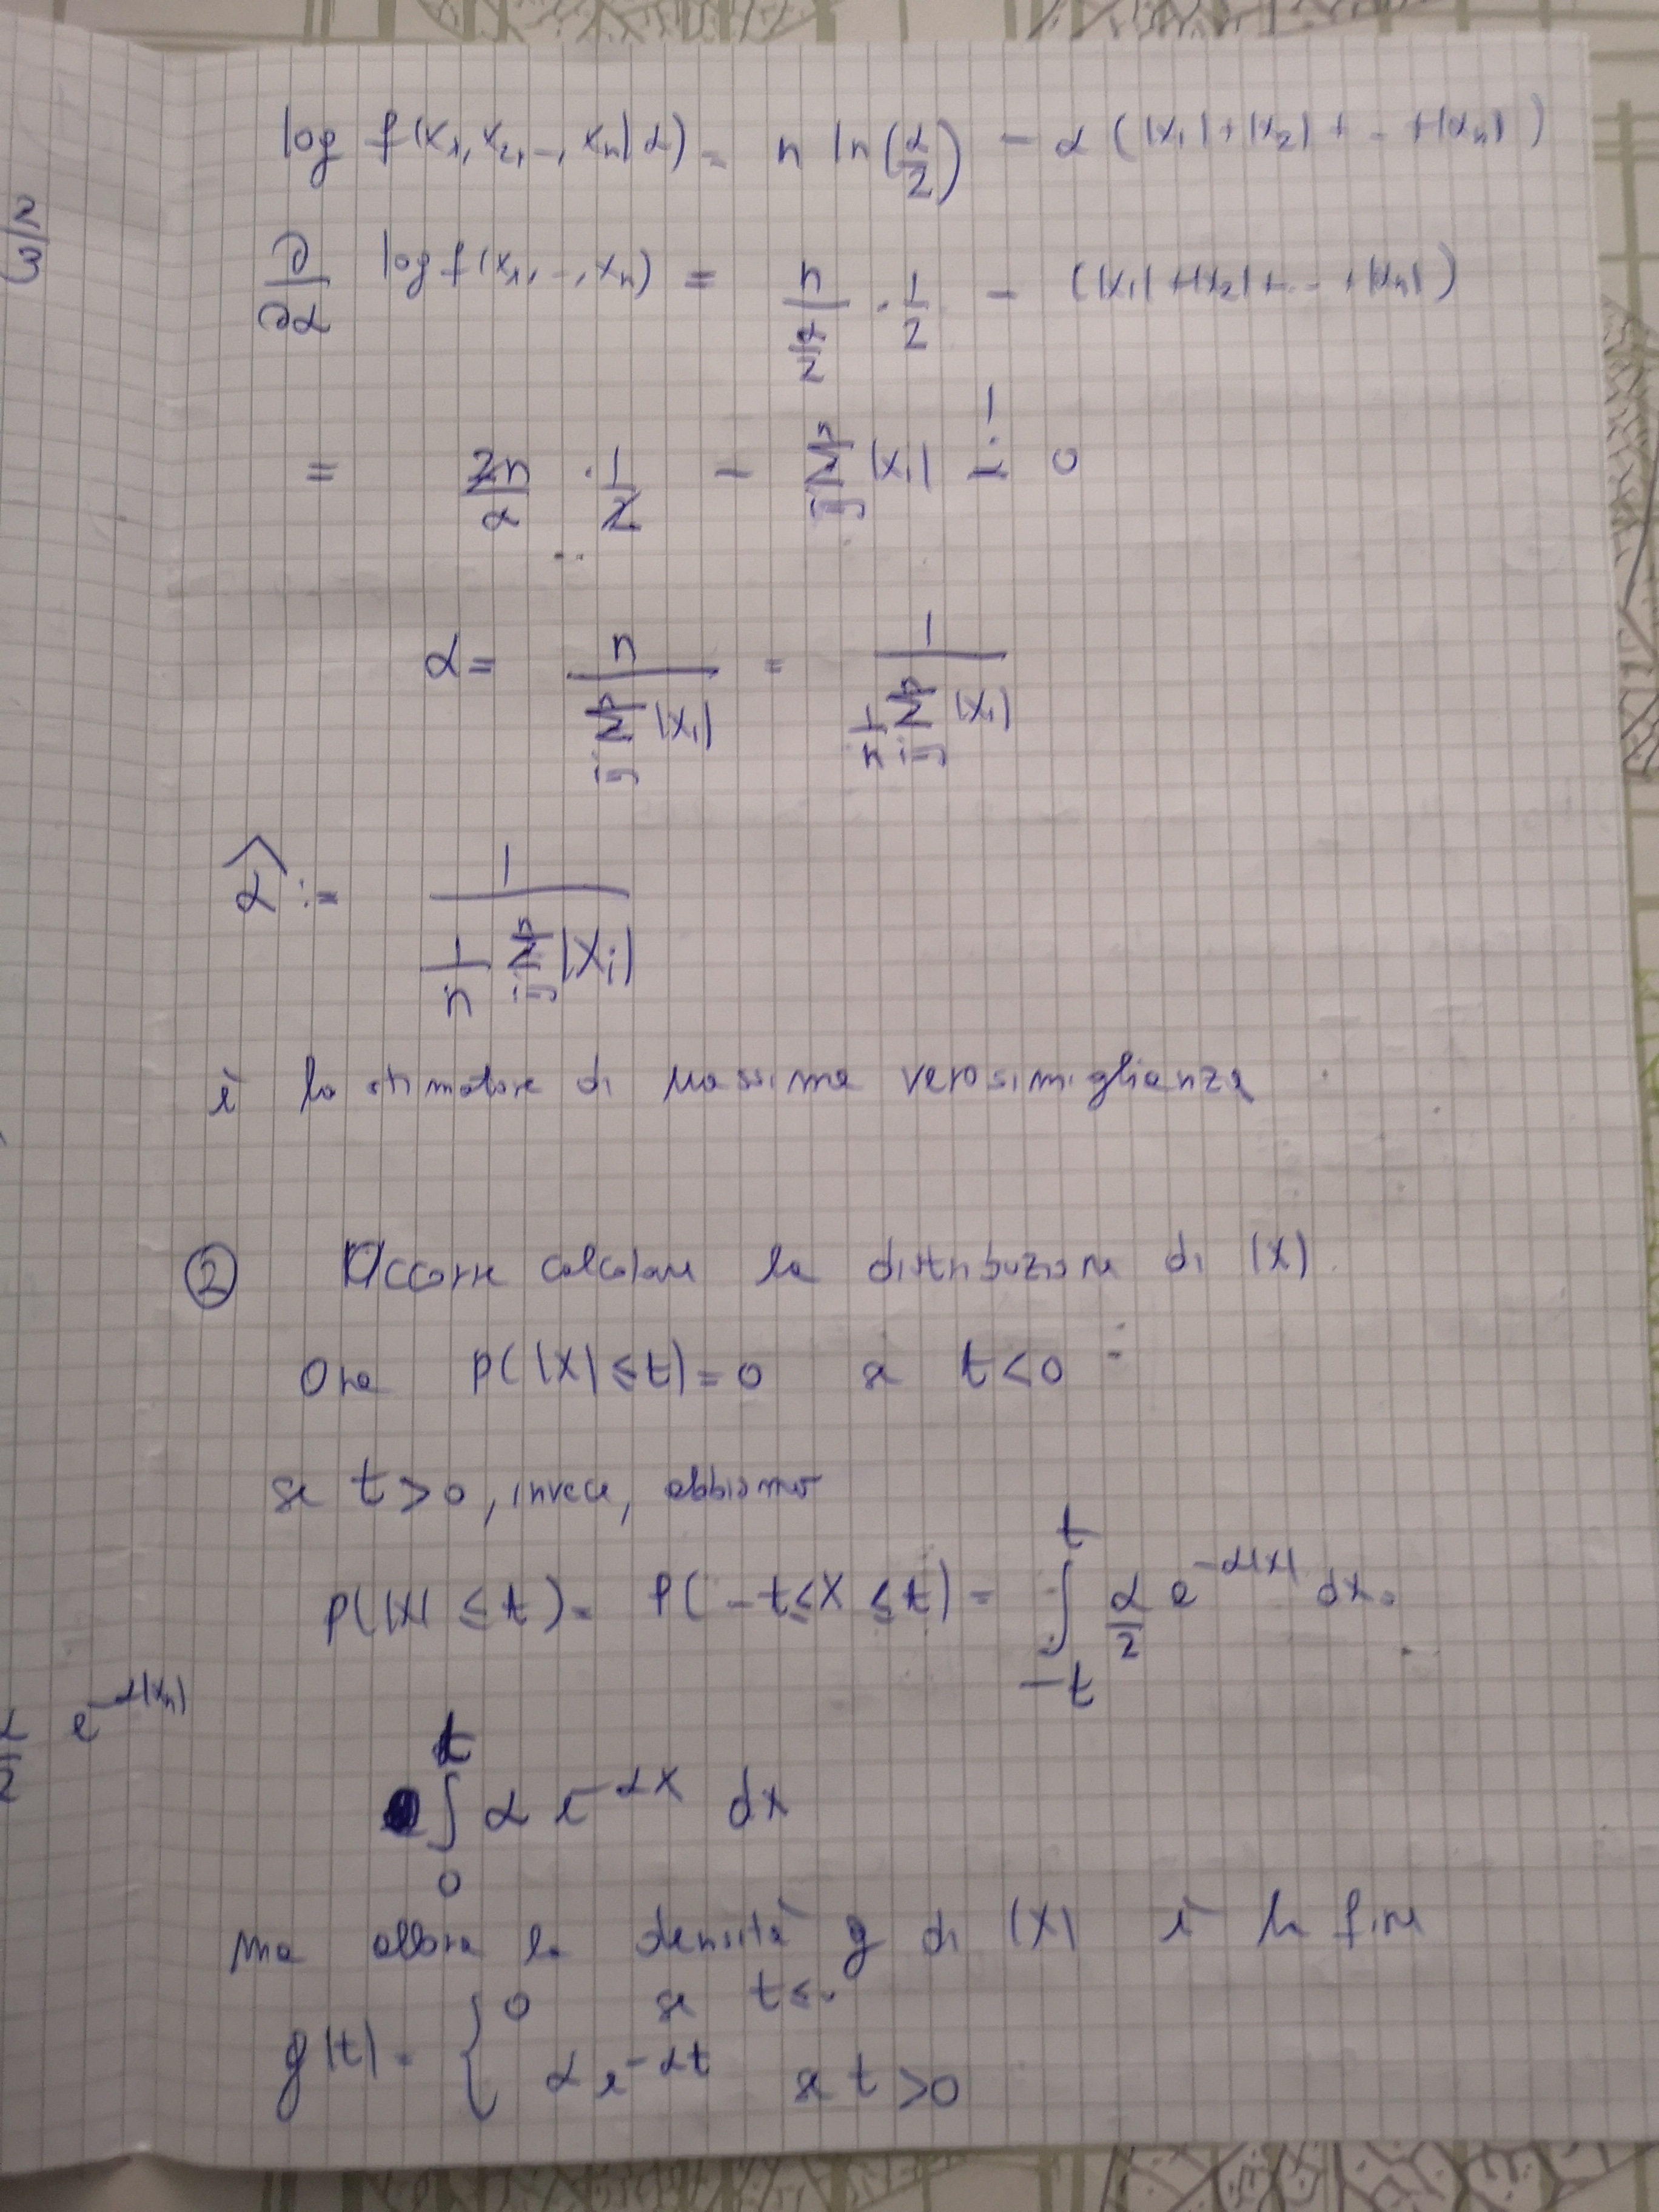 log f(x₁, x₂, _, xₙ|α) = n ln(α/2) - α (|x₁|+|x₂|+ - +|xₙ|)
∂/∂α log f(x₁, -, xₙ) = n/(α/2) · 1/2 - (|x₁|+|x₂|+ - - +|xₙ|)
= 2n/α · 1/2 - ∑ⁿᵢ₌₁ |xᵢ| =! 0
α = n/(∑ⁿᵢ₌₁ |xᵢ|) = 1/(1/n ∑ⁿᵢ₌₁ |xᵢ|)
α̂ := 1/(1/n ∑ⁿᵢ₌₁ |Xᵢ|)
è lo stimatore di massima verosimiglianza.
② Occorre calcolare la distribuzione di |X|.
Ora P(|X| ≤ t) = 0 se t < 0
se t > 0, invece, abbiamo
P(|X| ≤ t) = P(-t ≤ X ≤ t) = ∫₋ₜᵗ α/2 e^(-α|x|) dx =
∫₀ᵗ α e^(-αx) dx
ma allora la densità g di |X| è
g(t) = { 0 se t ≤ 0
α e^(-αt) se t > 0
2/3
α/2 e^(-α|xₙ|)